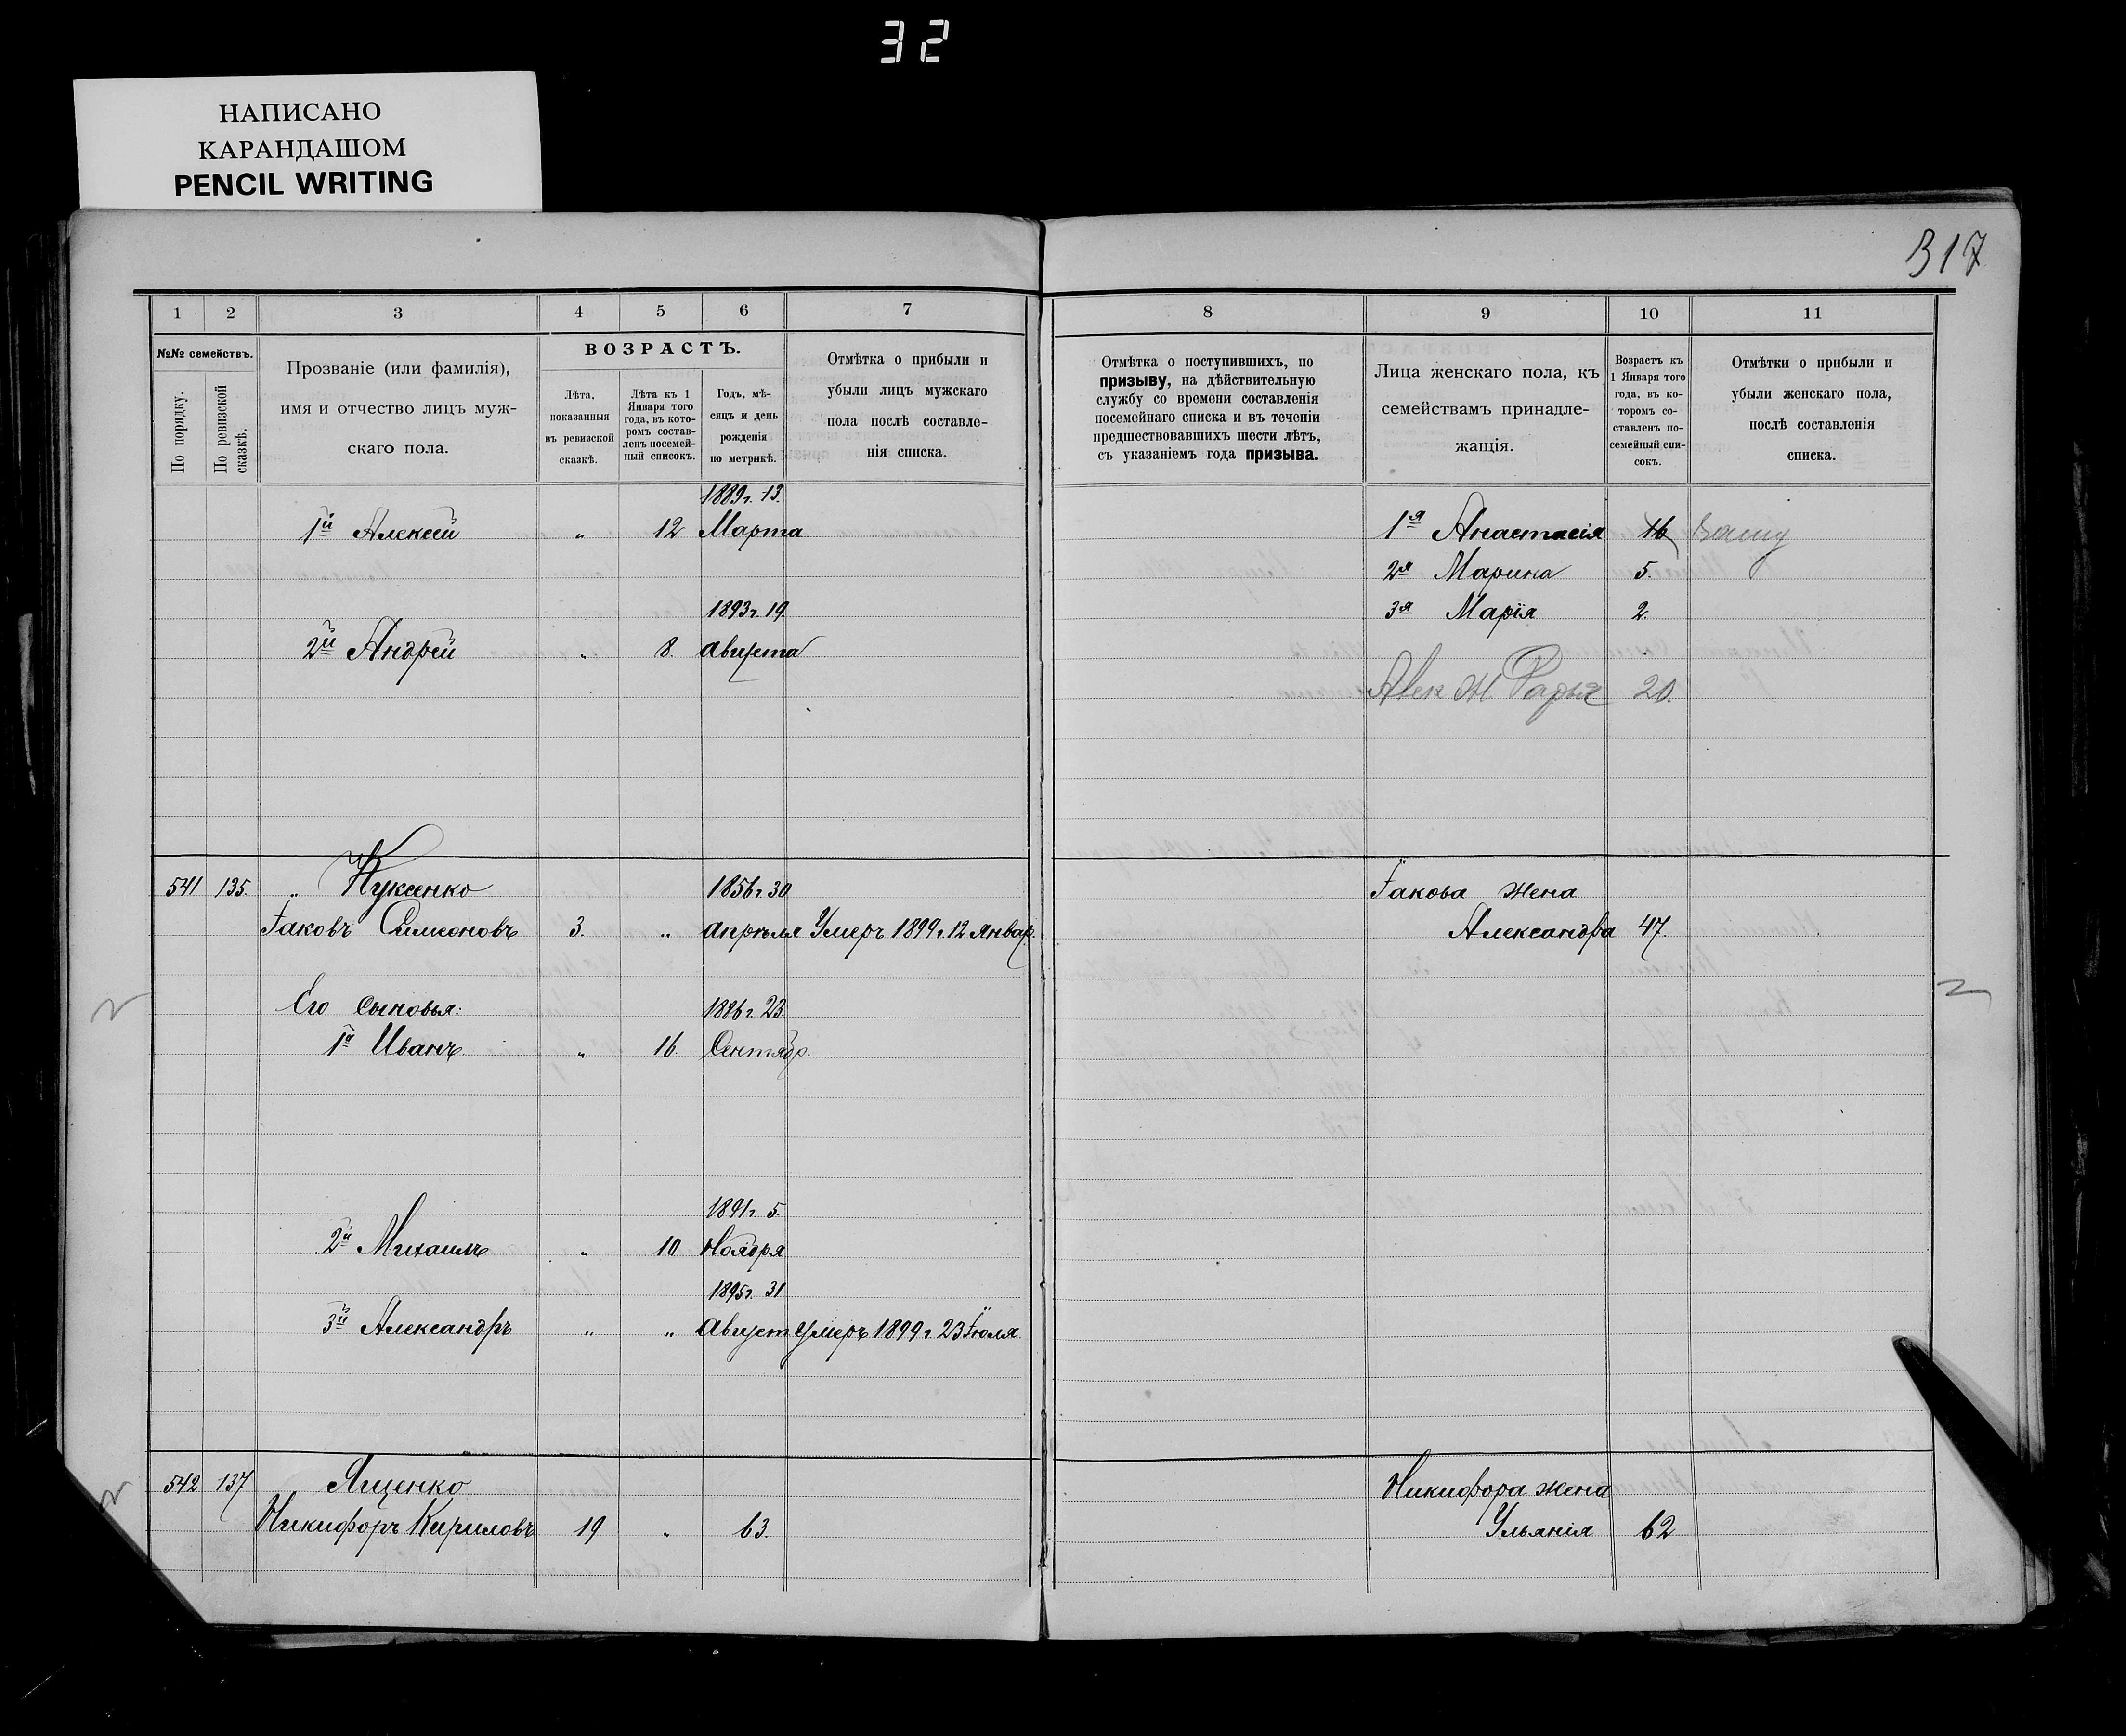 32
НАПИСАНО
КАРАНДАШОМ
PENCIL WRITING
317
1 2 3 4 5 6 7 8 9 10 11
№№ семействъ.
По порядку.
По ревизской сказкѣ.
Прозваніе (или фамилія),
имя и отчество лицъ муж-
скаго пола.
ВОЗРАСТЪ.
Лѣта,
показанныя
въ ревизской
сказкѣ.
Лѣта къ 1
Января того
года, въ кото-
ромъ состав-
ленъ посемей-
ный списокъ.
Годъ, мѣ-
сяцъ и день
рожденія
по метрикѣ.
Отмѣтка о прибыли и
убыли лицъ мужскаго
пола послѣ составле-
нія списка.
Отмѣтка о поступившихъ, по
призыву, на дѣйствительную
службу со времени составленія
посемейнаго списка и въ теченіи
предшествовавшихъ шести лѣтъ,
съ указаніемъ года призыва.
Лица женскаго пола, къ
семействамъ принадле-
жащія.
Возрастъ къ
1 Января того
года, въ ко-
торомъ со-
ставленъ по-
семейный спи-
сокъ.
Отмѣтки о прибыли и
убыли женскаго пола,
послѣ составленія
списка.
1889 г. 13.
1й Алексѣй " 12 Марта 1я Анастасія 16
2я Марина 5.
1893 г. 19. 3я Марія 2.
2й Андрей " 8. Августа
20.
541 135. " Куксенко 1856 г. 30 Іакова жена
Іаковъ Симеоновъ 3. " Апрѣля Умеръ 1899 г. 12 Январ. Александра 47.
Его сыновья: 1886 г. 23.
1й Иванъ " 16. Сентябр.
1891 г. 5.
2й Михаилъ " 10 Ноября
1895 г. 31
3й Александръ " " Август Умеръ 1899 г. 23 Іюля
542 137 Ященко Никифора жена
Никифоръ Кириловъ 19 " 63. Ульянія 62